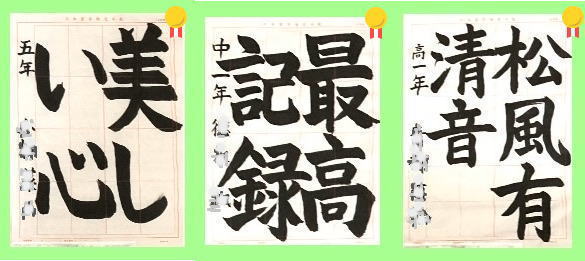 美し
い心
五年
最高
記録
中一年
松風有
清音
高一年